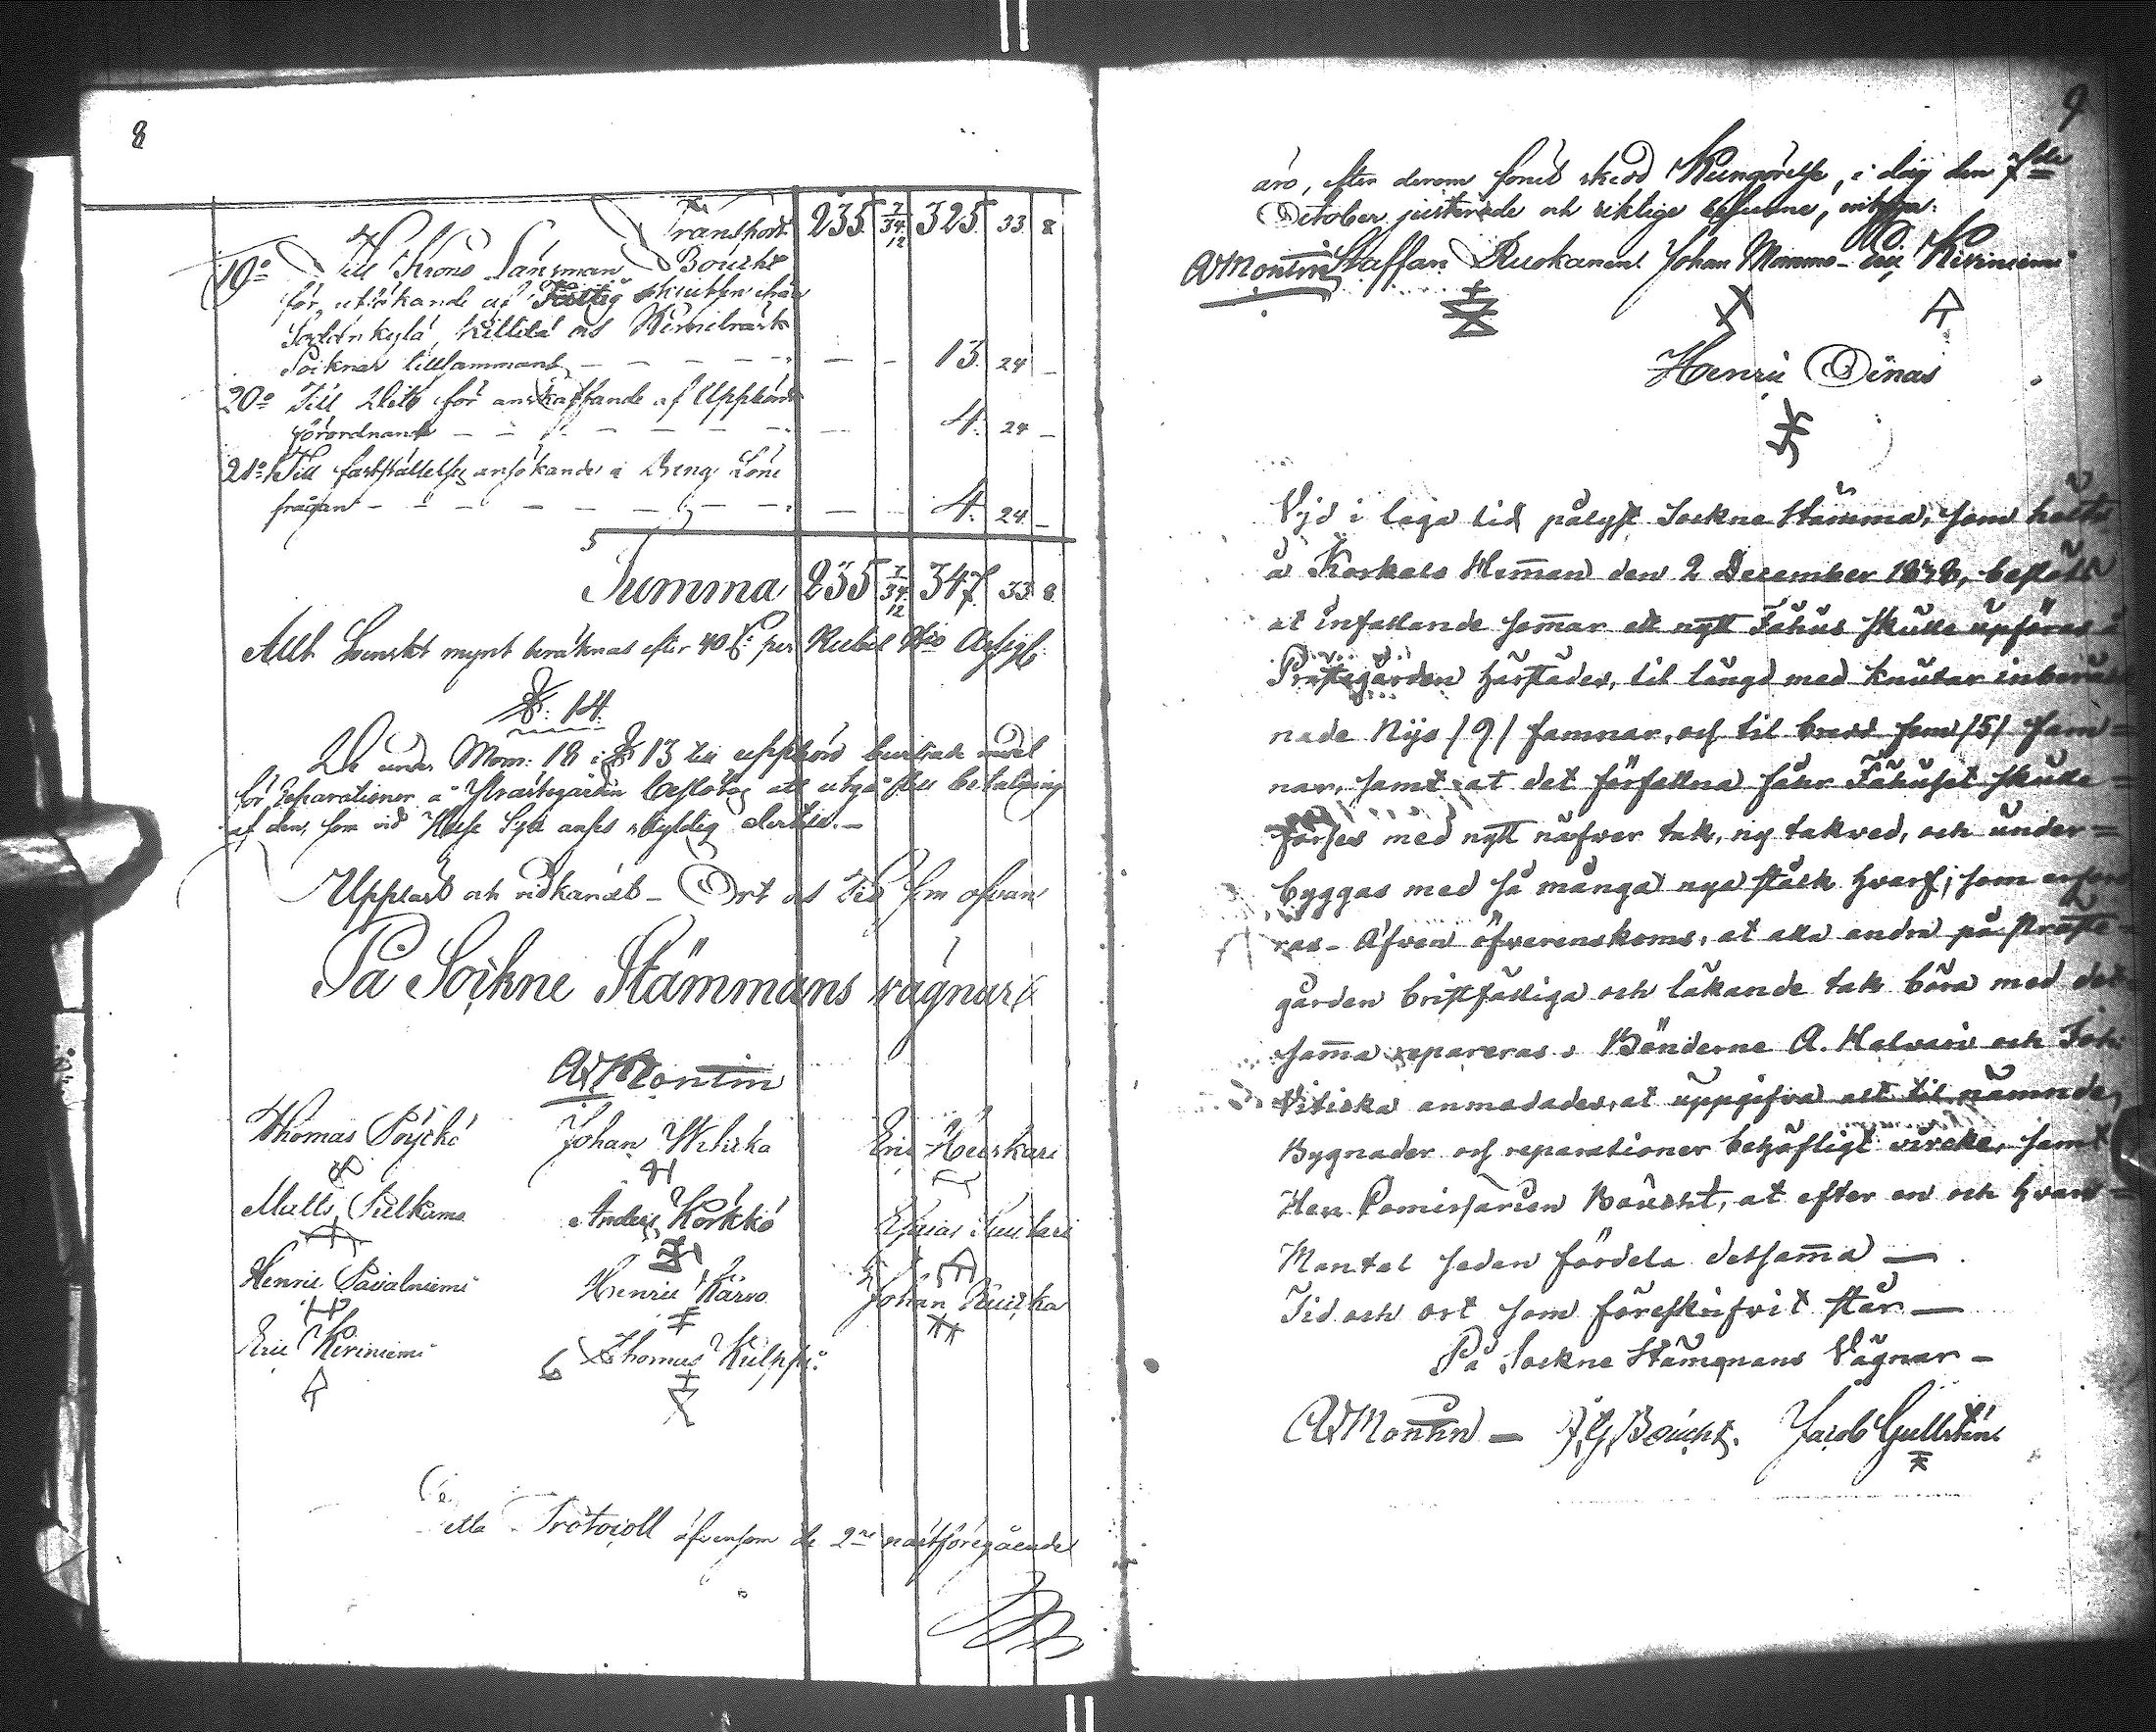 8
Transport 235 7/34.12 325 33. 8
19o Till Krono Länsman Boucht
för utsökande af skutten från
Sodankylä, Kittilä och Kemiträsk
Soknar tillsammans — — — — 13. 24 —
20o Till Dito för anskaffande af Uppbörds
förordnande — — — — — — 4. 24 —
21o Till fastställelse ansökande i Dreng Löne
frågan — — — — — — — 4. 24. —
Summa 235 7/34.12 347. 33. 8.
Allt Svenskt mynt beräknas efter 40 per Rubel Bco Assign:
§: 14.
De under Mom: 18 i § 13 till uppbörd medel
för Reparationer å Prästegården beslötos att utgå till betalning
af den, som vid Husesyn anses skyldig dertill.—
Uppläst och vidkändt — Ort och Tid som ofvan
På Sockne Stämmans vägnar
A Montin
Thomas Pöyckö Johan Witiska Eric Heiskari
Matts Sulkumo Anders Korkko Esaias Suutari
Henric Pavalniemi Henric Karvo Johan Ruicka
Eric Kiviniemi Thomas Kulppi
Detta Protocoll äfvensom de 2ne nästföregående
9
äro, efter derom förut skedd Kungörelse, i dag den 7de
October justerade och riktige befundne, 
A Montin Staffan Ruokanen Johan Mommo Eric Kiviniemi
Henric Oinas
Vid i laga tid pålyst Sockne Stämma, som hölts
å Korkalo Hemman den 2 December 1838, beslöts
at infallande sommar ett nytt Fähus skulle upföras å
Prästegården härstädes, til längd med knutar inberäk
nade Nijo /9/ famnar, och til bredd fem /5/ fam=
nar, samt at det förfallna Fähuset skulle
förses med nytt näfver tak, ny takved, och under=
byggas med så många nya stock hvarf, som erford
ras — Äfven öfverenskoms, at alla andra på Präste=
gården bristfälliga och läkande tak böra med det
samma repareras. Bönderne A. Halvari och Joh.
Vitiska anmodades, at uppgifva alt til nämnde
Bygnader och reparationer behöfligt virke, samt
Herr Comissarien Boucht, at efter en och hvars
Mantal sedan fördela detsamma —
Tid och ort som föreskrifvit står —
På Sockne Stämmans Vägnar —
A Montin — J. G. Boucht. Jacob Gullstén